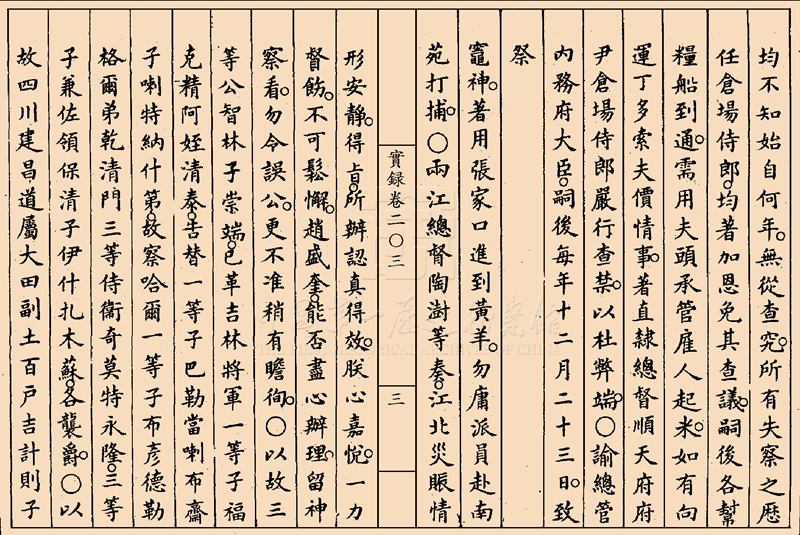 均不知始自何年。無從查究。所有失察之歷
任倉場侍郎。均著加恩免其查議。嗣後各幫
糧船到通。需用夫頭承管雇人起米。如有向
運丁多索夫價情事。著直隸總督順天府府
尹倉場侍郎嚴行查禁。以杜弊端。○諭總管
內務府大臣。嗣後每年十二月二十三日。致
祭
竈神。著用張家口進到黃羊。勿庸派員赴南
苑打捕。○兩江總督陶澍等奏。江北災賑情
實錄卷二〇三
三
形安靜。得旨。所辦認真得效。朕心嘉悅。一力
督飭。不可鬆懈。趙盛奎。能否盡心辦理。留神
察看。勿令誤公。更不准稍有瞻徇。○以故三
等公智林子崇端。已革吉林將軍一等子福
克精阿姪清泰。告替一等子巴勒當喇布齋
子喇特納什第。故察哈爾一等子布彥德勒
格爾弟乾清門三等侍衞奇莫特永隆。三等
子兼佐領保清子伊什扎木蘇。各襲爵。○以
故四川建昌道屬大田副土百戶吉計則子